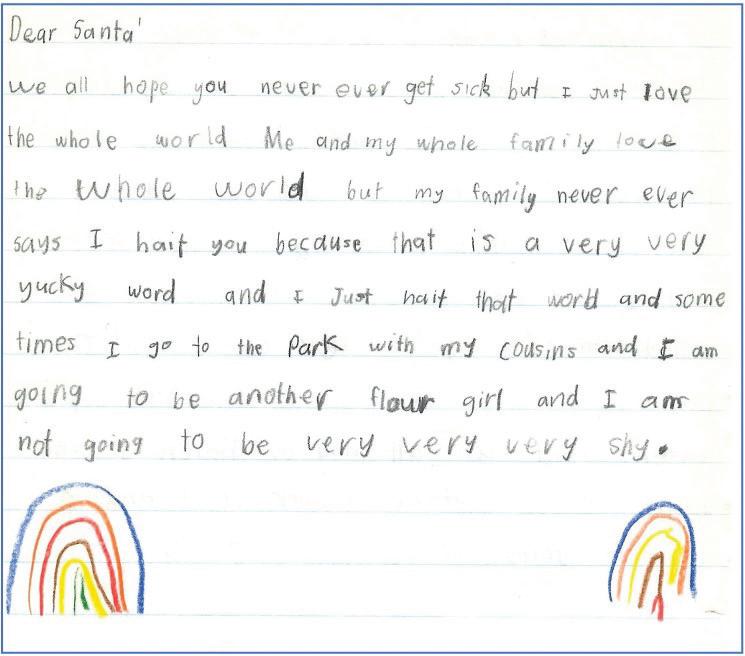 Dear Santa'
we all hope you never ever get sick but I Just love
the whole world Me and my whole family love
the whole world but my family never ever
says I hait you because that is a very very
yucky word and I Just hait that word and some
times I go to the Park with my cousins and I am
going to be another flour girl and I am
not going to be very very very shy.